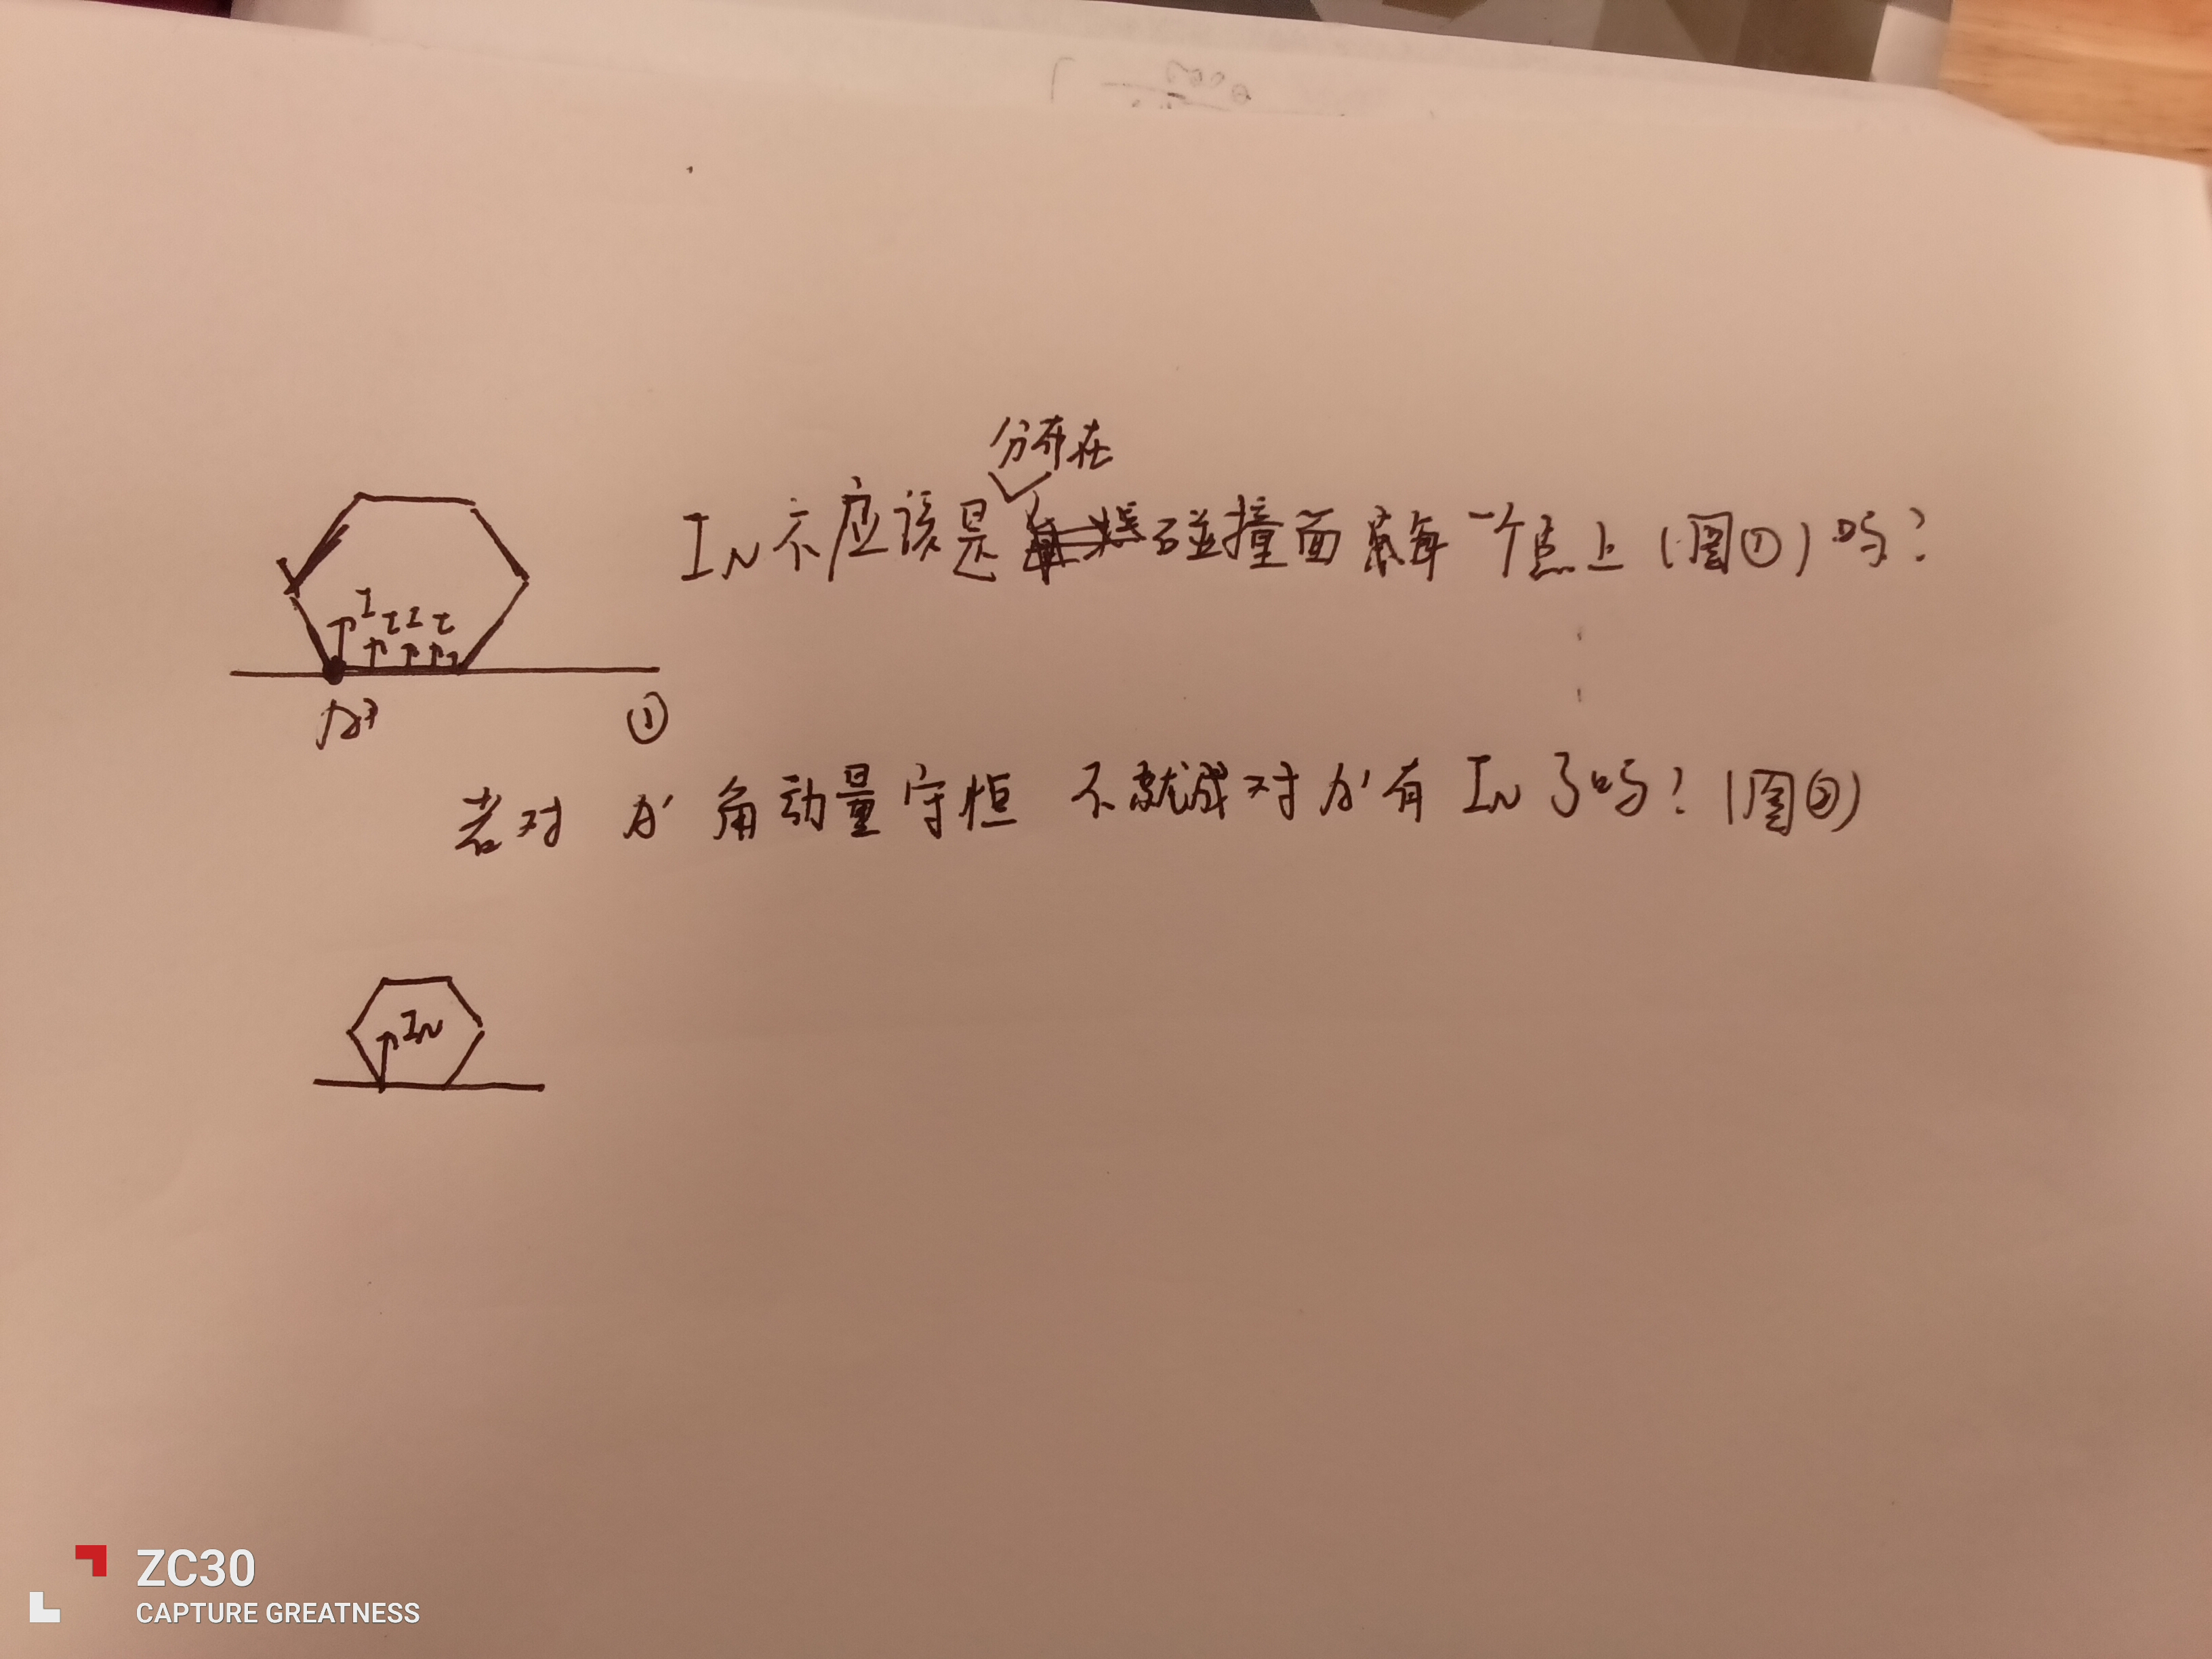 分布在
IN不应该是碰撞面每一个点上(图①)吗?
I I
①
若对 A' 角动量守恒 不就成对A'有 IN 了吗?(图②)
IN
ZC30
CAPTURE GREATNESS